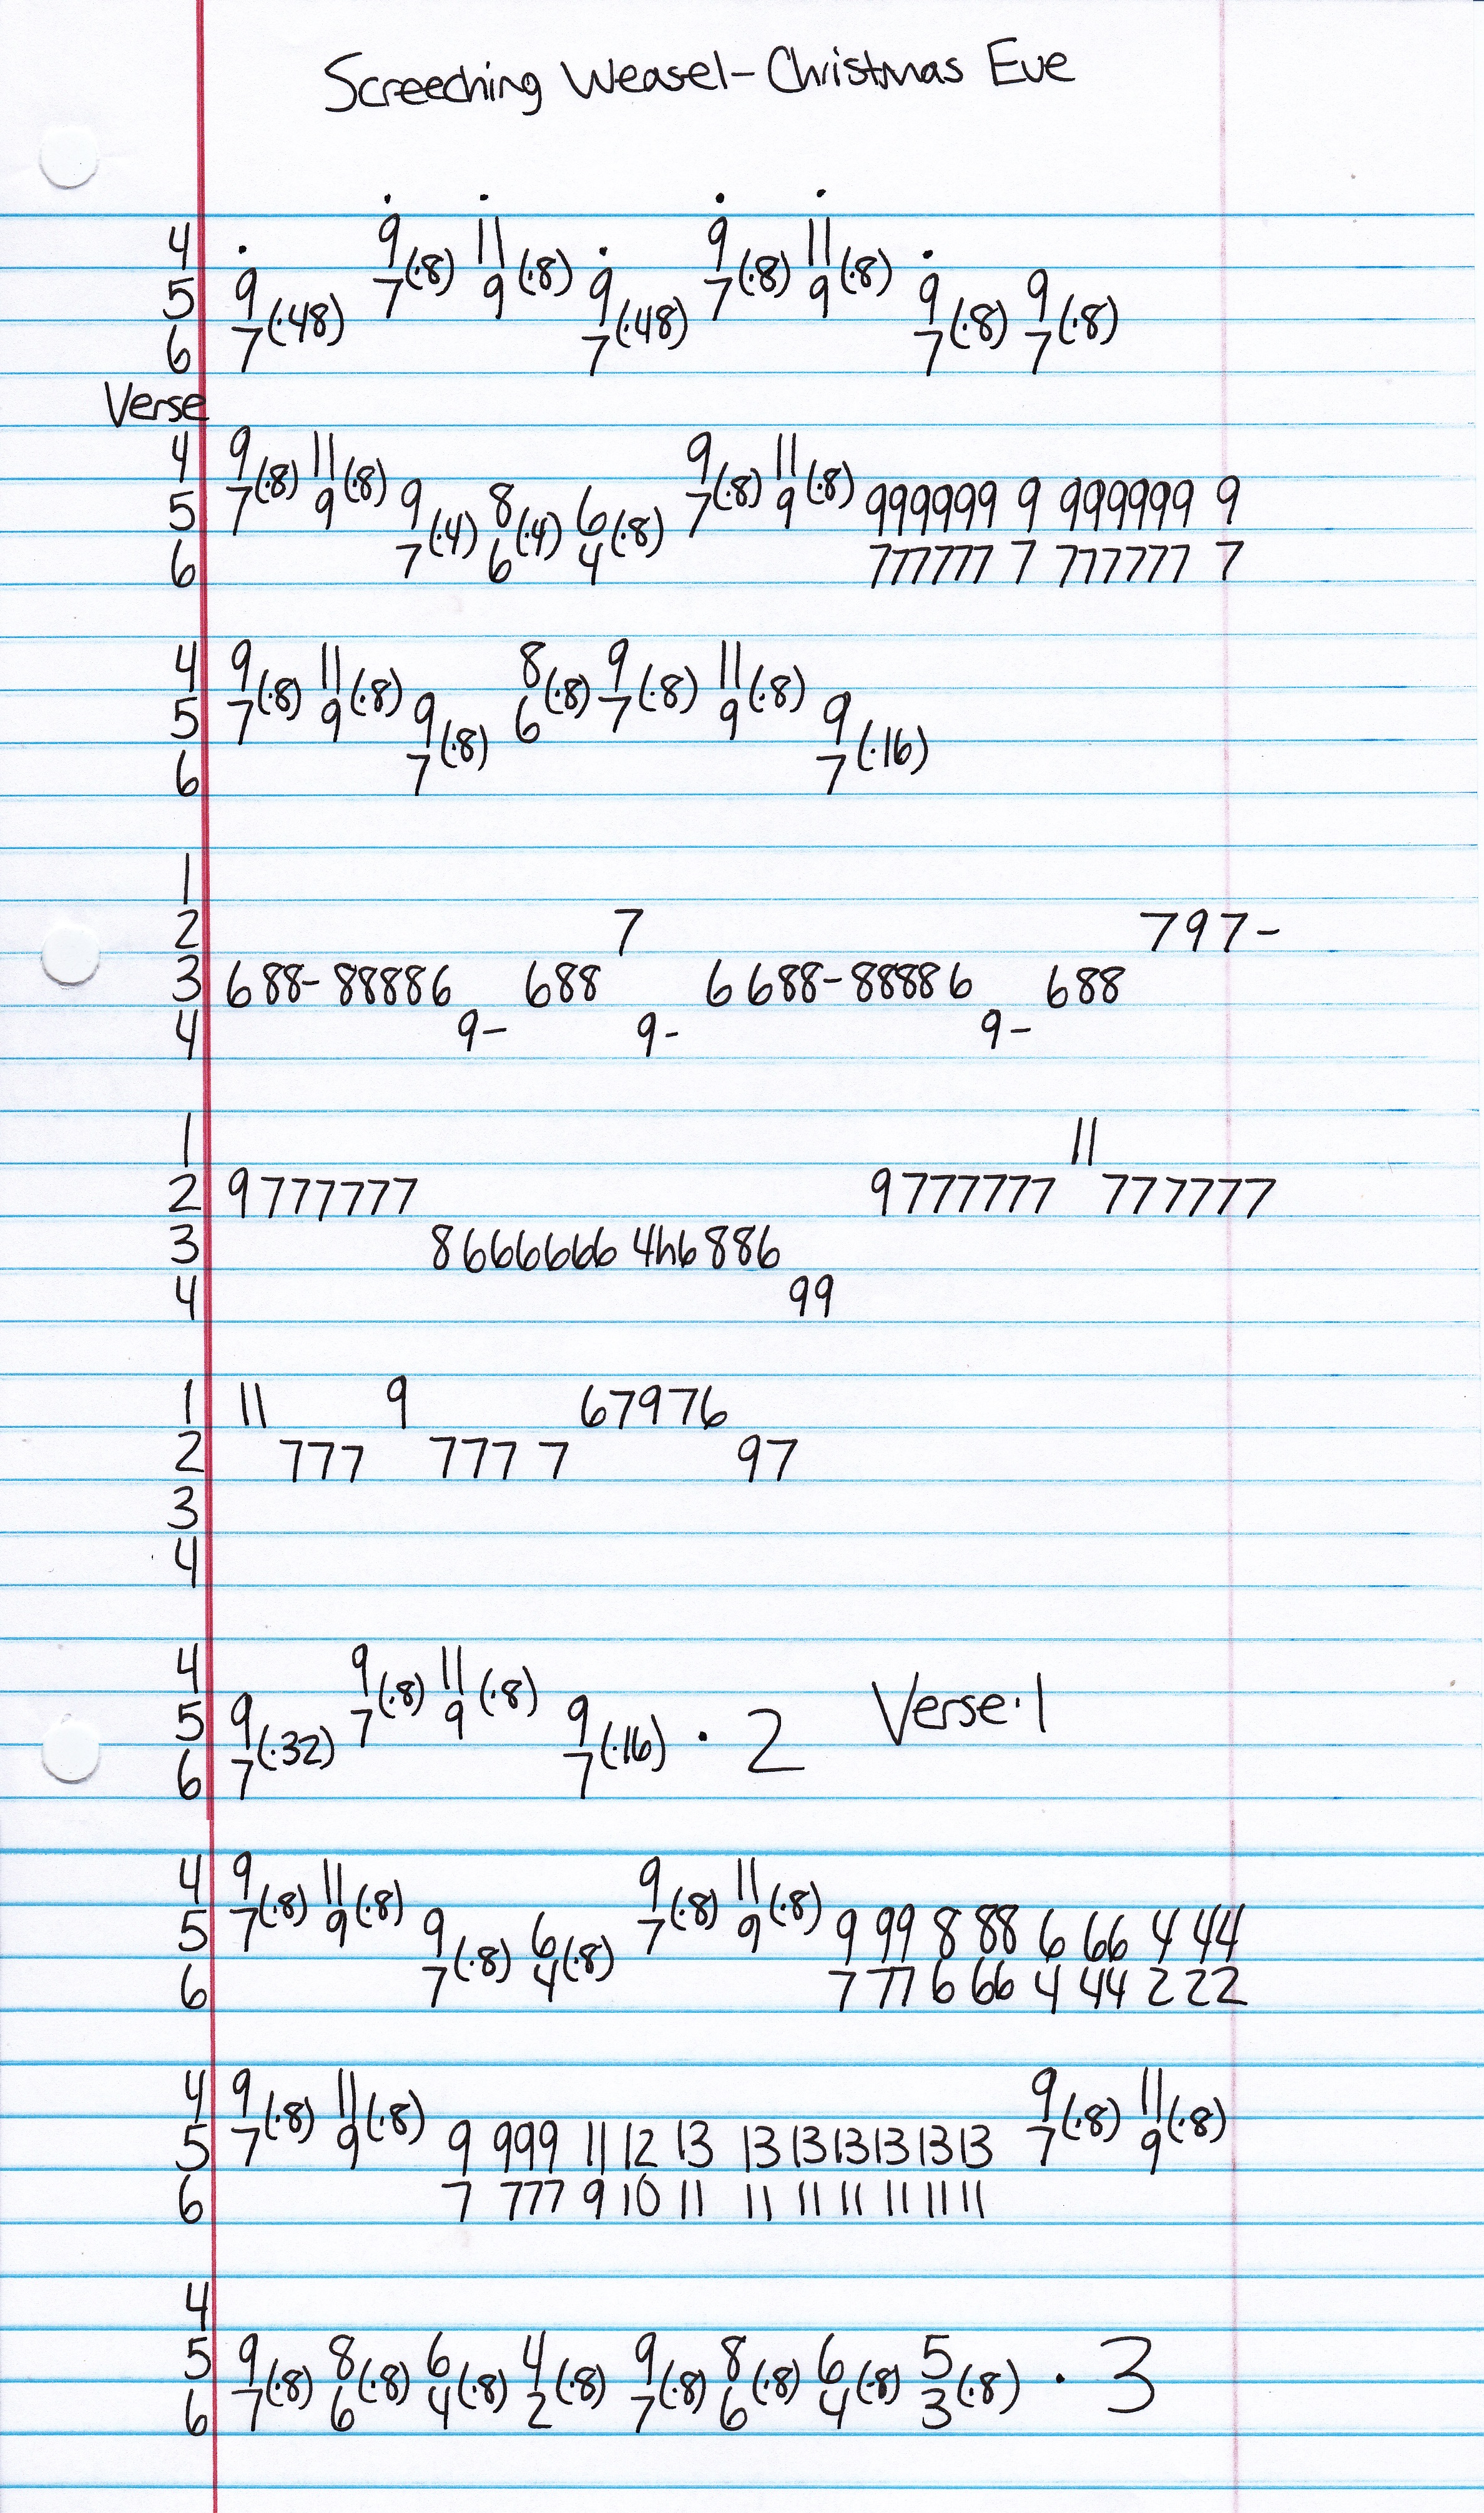 Screeching Weasel – Christmas Eve
. . . .
4 . 9 11 . 9 11 .
5 9 7(·8) 9(·8) 9 7(·8) 9(·8) 9 9
6 7(·48) 7(·48) 7(·8) 7(·8)
Verse
4 9 11 9 11
5 7(·8) 9(·8) 9 8 6 7(·8) 9(·8) 999999 9 999999 9
6 7(·4) 6(·4) 4(·8) 777777 7 777777 7
4 9 11 8 9 11
5 7(·8) 9(·8) 9 6(·8) 7(·8) 9(·8) 9
6 7(·8) 7(·16)
1
2 7 797-
3 688-88886 688 6 688-88886 688
4 9- 9- 9-
1 11
2 9777777 9777777 777777
3 8666666 4h6 886
4 99
1 11 9 67976
2 777 777 7 97
3
4
4 9 11
5 9 7(·8) 9(·8) 9 · 2 Verse·1
6 7(·32) 7(·16)
4 9 11 9 11
5 7(·8) 9(·8) 9 6 7(·8) 9(·8) 9 99 8 88 6 66 4 44
6 7(·8) 4(·8) 7 77 6 66 4 44 2 22
4 9 11 9 11
5 7(·8) 9(·8) 9 999 11 12 13 13 13 13 13 13 13 7(·8) 9(·8)
6 7 777 9 10 11 11 11 11 11 11 11
4
5 9 8 6 4 9 8 6 5 · 3
6 7(·8) 6(·8) 4(·8) 2(·8) 7(·8) 6(·8) 4(·8) 3(·8)